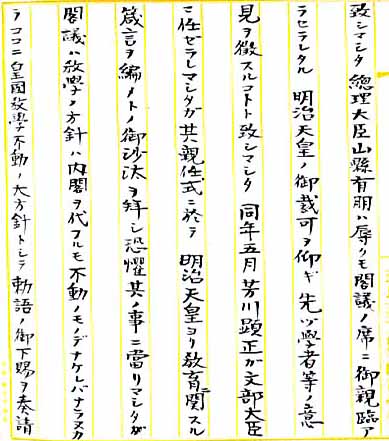 致シマシタ 總理大臣山縣有朋ハ辱クモ閣議ノ席ニ御親臨ア
ラセラレタル 明治天皇ノ御裁可ヲ仰ギ 先ヅ學者等ノ意
見ヲ徴スルコトト致シマシタ 同年五月 芳川顕正ガ文部大臣
ニ任ゼラレマシタガ其親任式ニ於テ 明治天皇ヨリ敎育ニ関スル
箴言ヲ編メトノ御沙汰ヲ拜シ恐懼其ノ事ニ當リマシタガ
閣議ハ敎學ノ方針ハ内閣ヲ代フルモ不動ノモノデナケレバナラヌカ
ラココニ皇國敎學不動ノ大方針トシテ 勅語ノ御下賜ヲ奏請